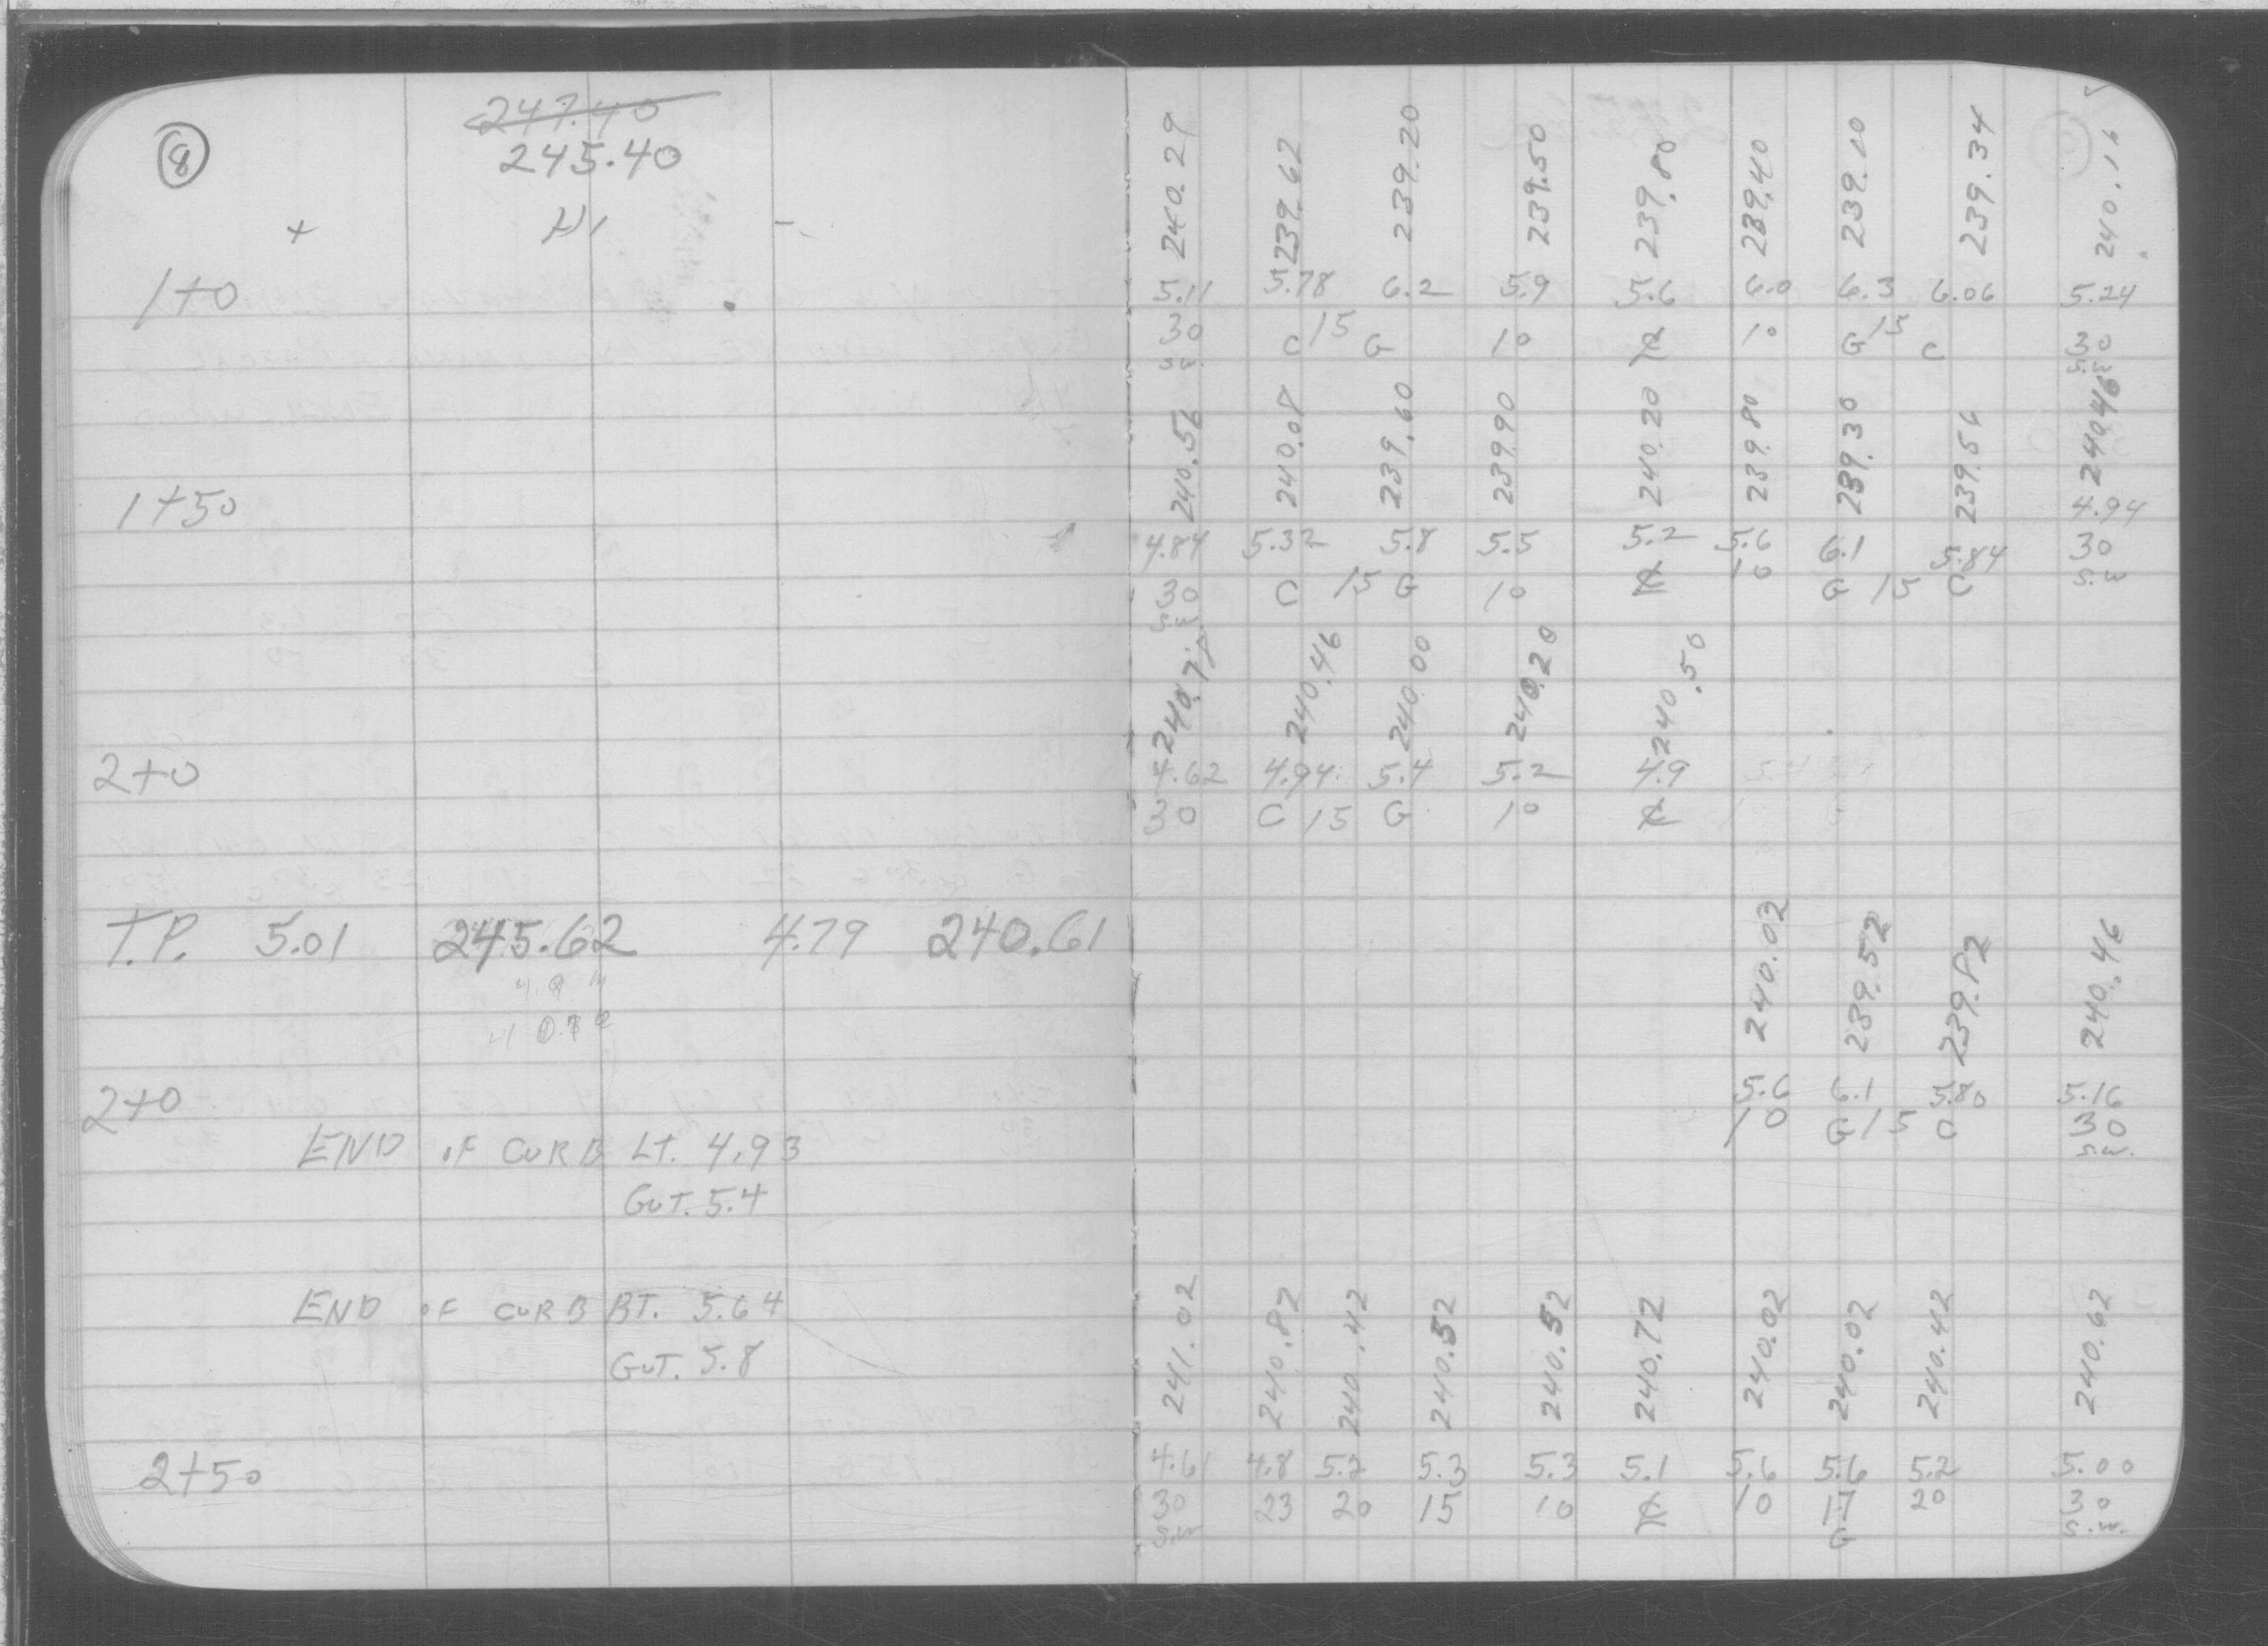 8
247.40
245.40
+ HI -
1+0
1+50
2+0
T.P. 5.01 245.62 4.79 240.61
2+0
END OF CURB LT. 4.93
GUT. 5.4
END OF CURB RT. 5.64
GUT. 5.8
2+50
240.29 239.62 239.20 239.50 239.80 239.40 239.10 239.34 240.16
5.11 5.78 6.2 5.9 5.6 6.0 6.3 6.06 5.24
30 C 15 G 10 ℄ 10 G 15 C 30
S.W. S.W.
240.56 240.08 239.60 239.90 240.20 239.80 239.30 239.56 240.46
4.84 5.32 5.8 5.5 5.2 5.6 6.1 5.84 4.94
30 C 15 G 10 ℄ 10 G 15 C 30
S.W. S.W.
240.78 240.46 240.00 240.20 240.50
4.62 4.94 5.4 5.2 4.9
30 C 15 G 10 ℄
240.02 239.52 239.82 240.46
5.6 6.1 5.80 5.16
10 G 15 C 30
S.W.
241.02 240.82 240.42 240.52 240.52 240.72 240.02 240.02 240.42 240.62
4.61 4.8 5.2 5.3 5.3 5.1 5.6 5.6 5.2 5.00
30 23 20 15 10 ℄ 10 17 20 30
S.W. G S.W.